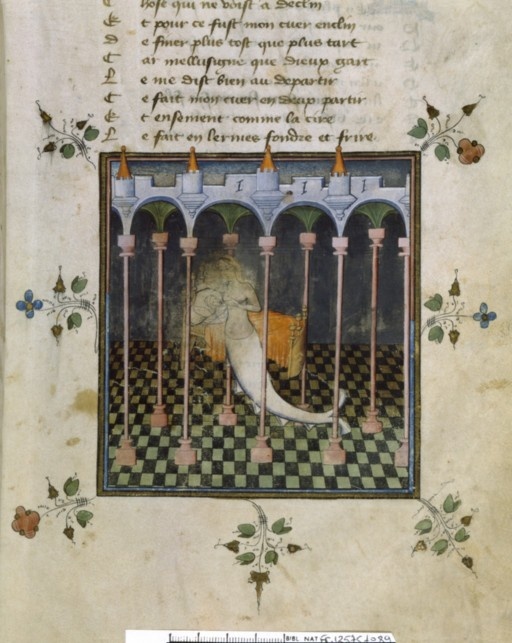 hose qui ne voist a declin
E t pour ce fust mon cuer enclin
D e finer plus tost que plus tart
C ar mellusigne que dieux gart
L e me dist bien au departir
E fait mon cuer en deux partir
E t ensement comme la cire
L e fait en lermes fondre et frire
BIBL NAT